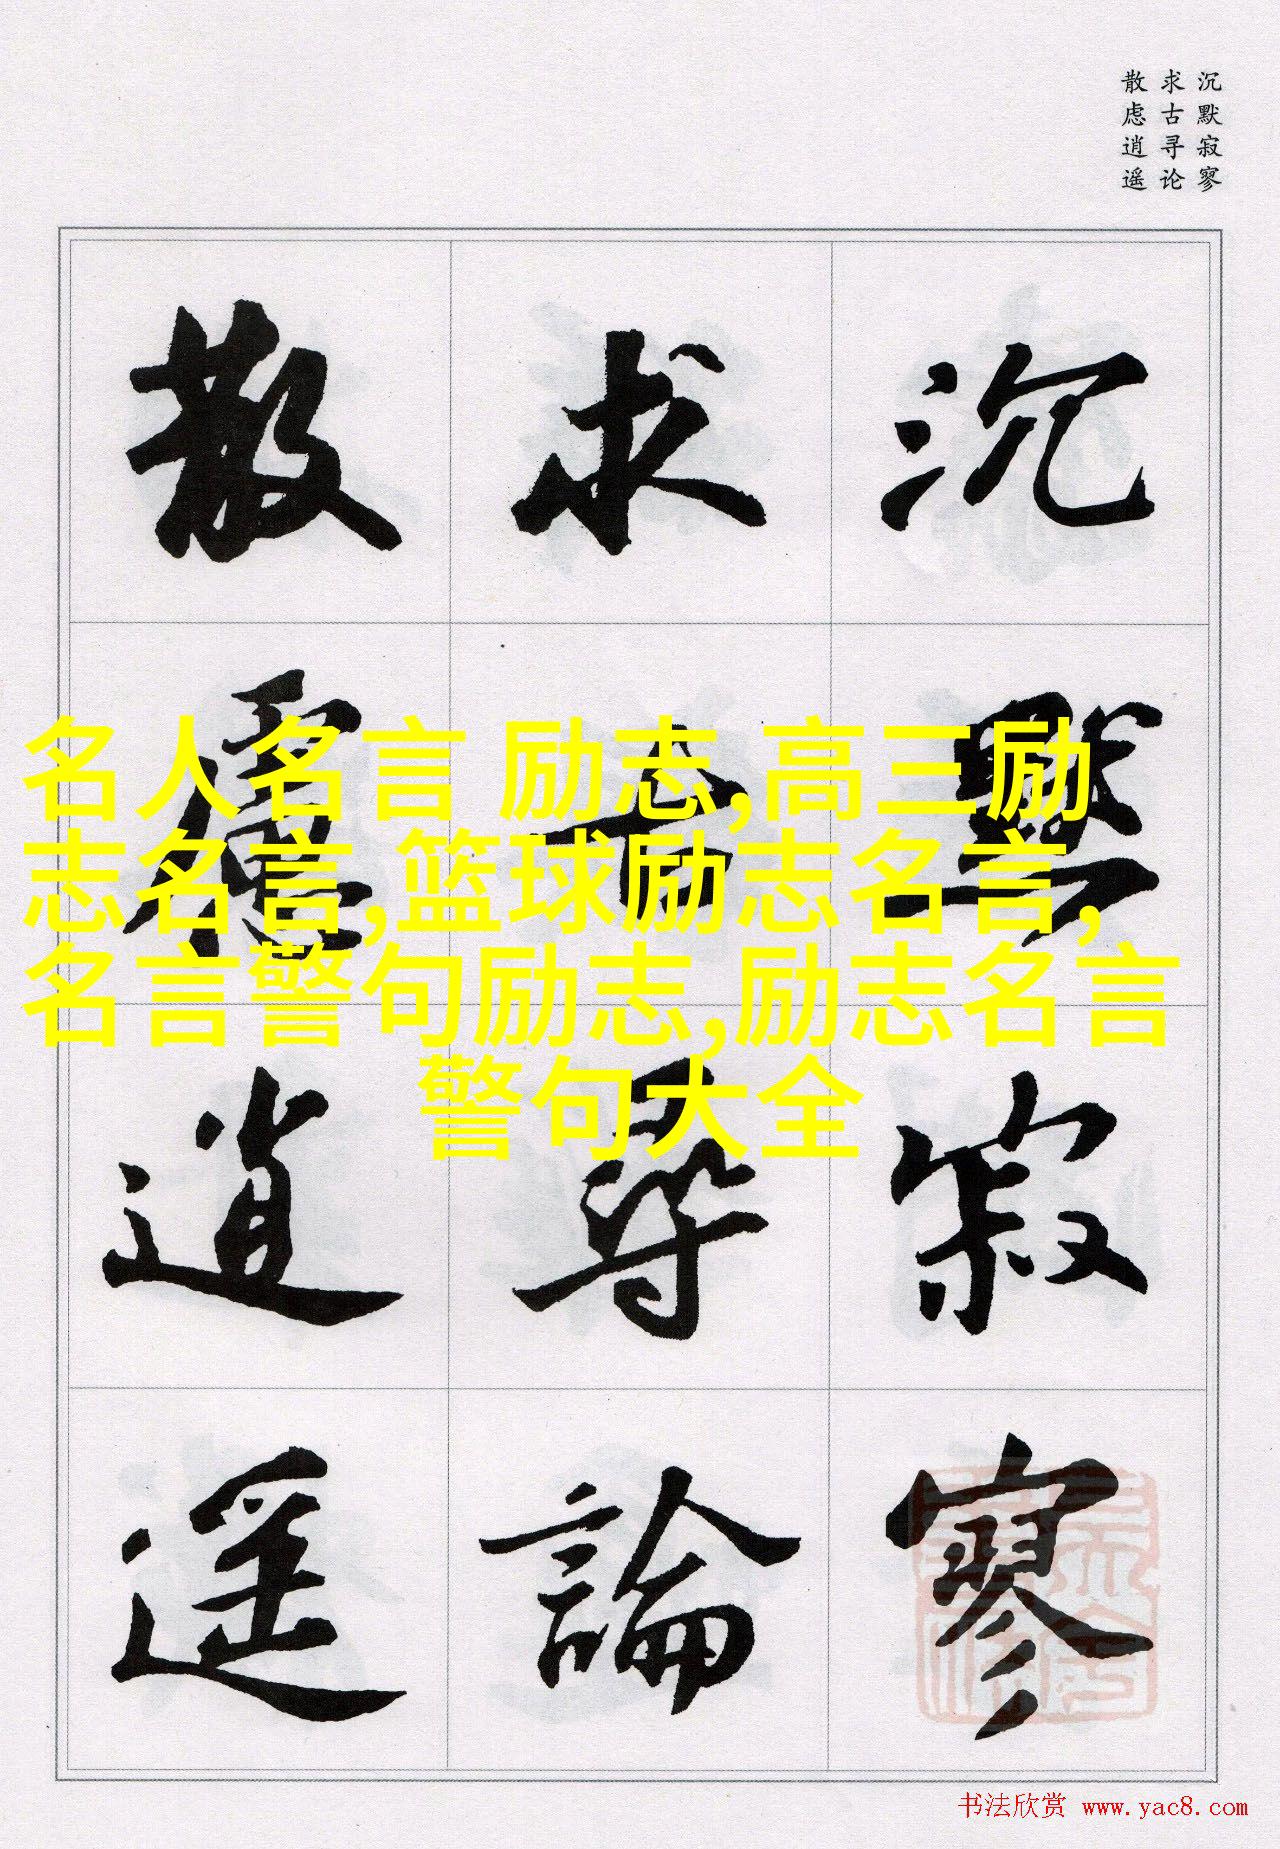 沉默寂寥
求古寻论
散虑逍遥
沉默寂寥
求古尋論
散慮逍遥
名人名言 励志,高三励
志名言,篮球励志名言,
名言警句励志,励志名言
警句大全
书法欣赏 www.yac8.com